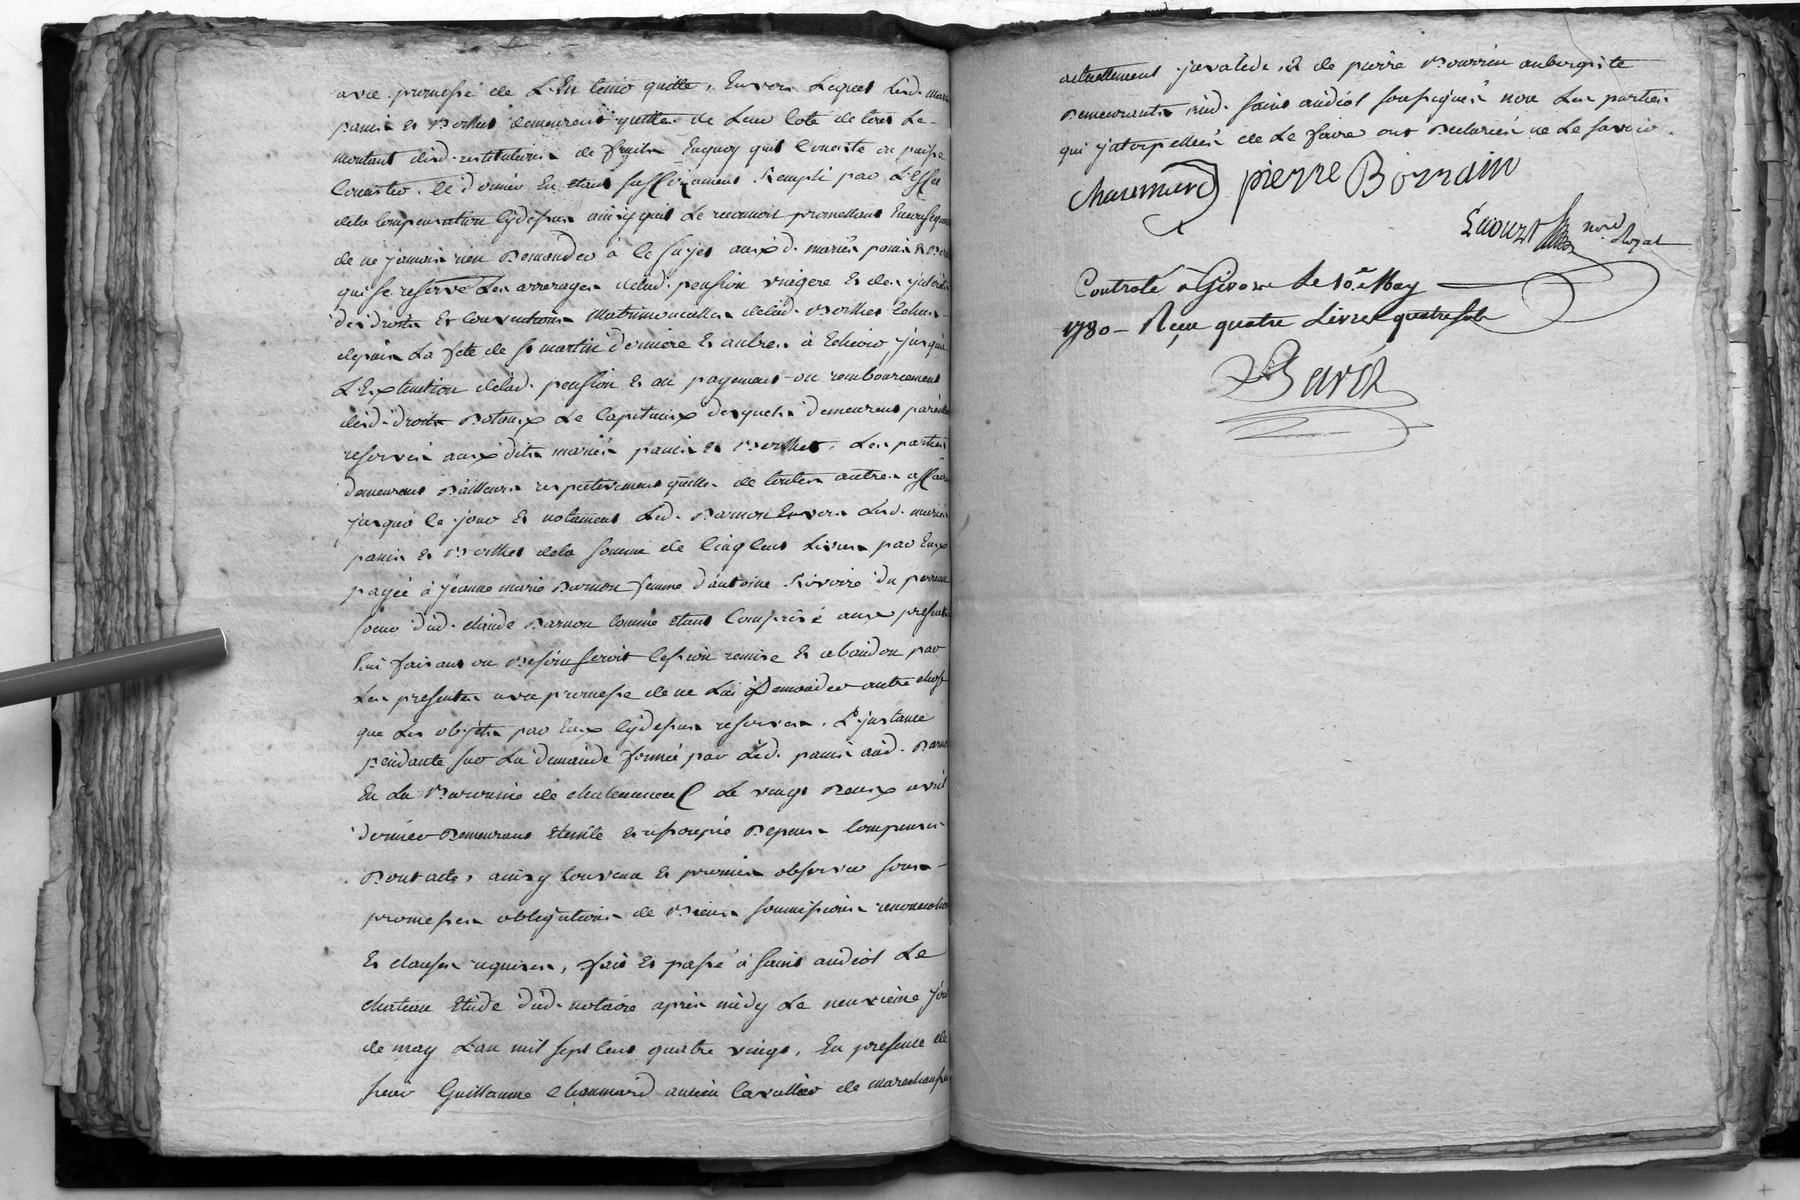 avec promesse de l'En tenir quitte, Envers lequel lesd. mariés
pamis et Berthet demeurent quittes de leur cote de tout le
montant desd. restitutions de fruits Enquoy quil Consiste ou puisse
Consister, le dernier En etant suffisament Rempli par l'Effet
dela Compensation cydessus ainsy quil le reconnoit promettant
de ne jamais rien Demander à ce sujet auxd. mariés pamis et
qui se reserve les arrerages delad. pension viagere et des
des droits et Conventions Matrimoniales delad. Berthet Echus
depuis La fete de St martin derniere et autres à Echeoir jusqua
L'Extinction delad. pension et au payement ou remboursement
desd. droits Dotaux Le Capitaux desquels demeurent
reservés auxdits mariés pamis et Berthet, Les parties
demeurent Dailleurs respectivement quittes de toutes autres affaires
jusquà ce jour et notament led. Barnon Envers lesd. mariés
pamis et Berthet dela somme de Cinq cent Livres par Eux
payée à jeanne marie Barnon femme d'antoine Rivoire du
soeur dud. claude Barnon comme etant Comprise aux presentes
lui faisant ou Besoin seroit Cession remise et abandon par
Les presentes avec promesse de ne Lui Demander autre chose
que les objets par Eux cydessus reservés. L'instance
pendante sur La demande formée par led. pamis aud. Barnon
En La Baronnie de chateauneuf le vingt Deux avril
dernier Demeurant Eteinte et assoupie Depens Compensés
Dont acte, ainsy Convenu et promis observer sous
promesses obligations de Biens soumissions renonciations
Et clauses requises, fait et passé à saint andéol Le
chateau Etude dud. notaire après midy Le neuvième jour
de may L'an mil sept cent quatre vingt, En presence de
sieur Guillaume Chaumard ancien Cavallier de marechaussée
actuellement de pierre aubergiste
Demeurants aud. saint andéol soussignés non les parties
qui jnterpellées de Le faire ont Déclarées ne Le savoir.
Chaumard pierre
nore Royal
Controlé à Givors le 10e May
1780 - Reçu quatre Livres quatre sols